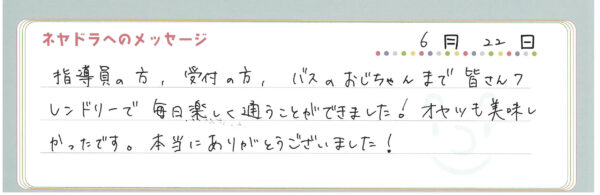 ネヤドラへのメッセージ
6月 22日
指導員の方, 受付の方, バスのおじちゃんまで皆さんフ
レンドリーで毎日楽しく通うことができました! オヤツも美味し
かったです。本当にありがとうございました!